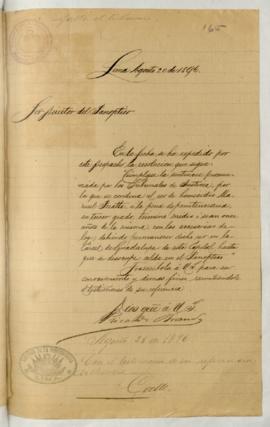 165
Lima Agosto 20 de 1896.
Señor Director del Panóptico
En la fecha se ha expedido por
este Despacho la resolución que sigue:
"Cúmplase la sentencia pronun-
ciada por los Tribunales de Justicia, por
la que se condena al reo de homicidio Ma-
nuel á la pena de penitenciaría
en tercer grado, término medio ó sean once
años de la misma, con las accesorias de
ley; debiendo permanecer dicho reo en la
Cárcel de Guadalupe de esta Capital hasta
que se desocupe celda en el Panóptico"
Trascríbola á US. para su
conocimiento y demás fines, remitiéndole
el testimonio de su referencia.
Dios gue á U.S.
Agosto 26 de 1896.
Con el testimonio de su referencia